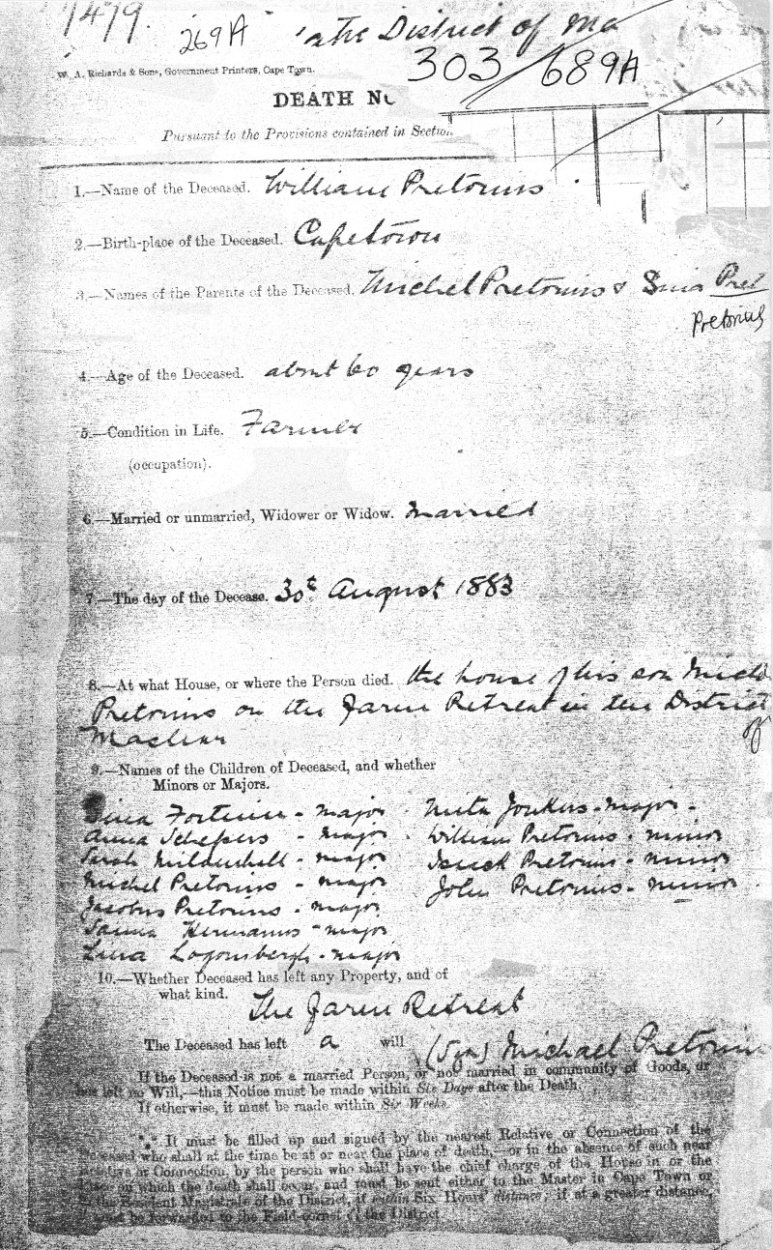 1479.
269A
the District of Ma
303/689A
W. A. Richards & Sons, Government Printers, Cape Town.
DEATH N
Pursuant to the Provisions contained in Section
1.—Name of the Deceased. William Pretorius
2.—Birth-place of the Deceased. Capetown
3.—Names of the Parents of the Deceased. Michel Pretorius & Pret
Pretorius
4.—Age of the Deceased. about 60 years
5.—Condition in Life. Farmer
(occupation).
6.—Married or unmarried, Widower or Widow. Married
7.—The day of the Decease. 30t August 1883
8.—At what House, or where the Person died. the house of his son Michl
Pretorius on the Farm Retreat in the District
of
Maclear
9.—Names of the Children of Deceased, and whether
Minors or Majors.
Fortuin - major . Jonkers - major -
Anna Schepers - major . William Pretorius - minor
Sarah Mildenhall - major Isaack Pretorius - minor
Michel Pretorius - major John Pretorius - minor
Jacobus Pretorius - major
Sanna Hermanus - major
- major
10.—Whether Deceased has left any Property, and of
what kind.
The Farm Retreat
The Deceased has left a will (Sgn) Michael Pretorius
If the Deceased is not a married Person, or not married in community of Goods, or
has left no Will,—this Notice must be made within Six Days after the Death.
If otherwise, it must be made within Six Weeks.
*** It must be filled up and signed by the nearest Relative or Connection of the
Deceased who shall at the time be at or near the place of death,—or in the absence of such near
Relative or Connection, by the person who shall have the chief charge of the House in or the
Place on which the death shall occur, and must be sent either to the Master in Cape Town or
to the Resident Magistrate of the District, if within Six Hours' distance; if at a greater distance,
must be forwarded to the Field-cornet of the District.